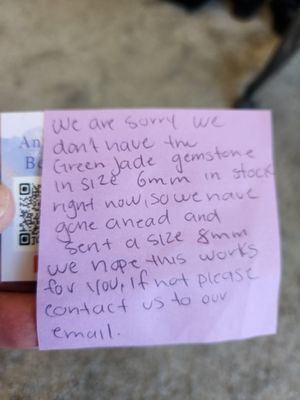 We are sorry we
don't have the
Green Jade gemstone
in size 6mm in stock
right now, so we have
gone ahead and
sent a size 8mm
we hope this works
for you, If not please
contact us to our
email.
An
Be